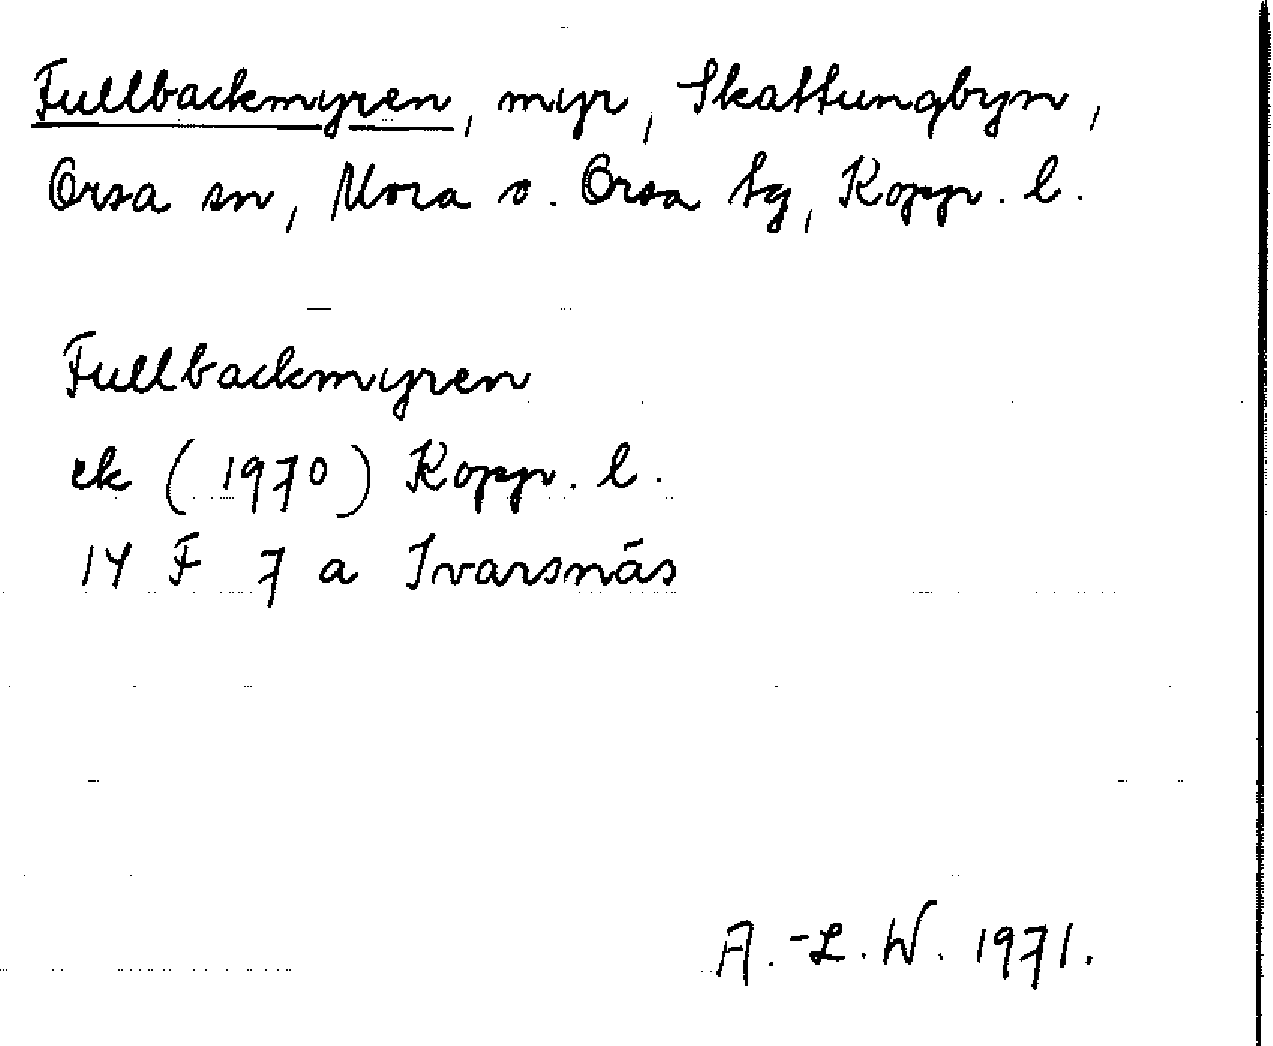 Fullbackmyren, myr, Skattungbyn,
Orsa sn, Mora o. Orsa tg, Kopp. l.
Fullbackmyren
ek (1970) Kopp. l.
14 F 7 a Ivarsnäs
A.-L. W. 1971.